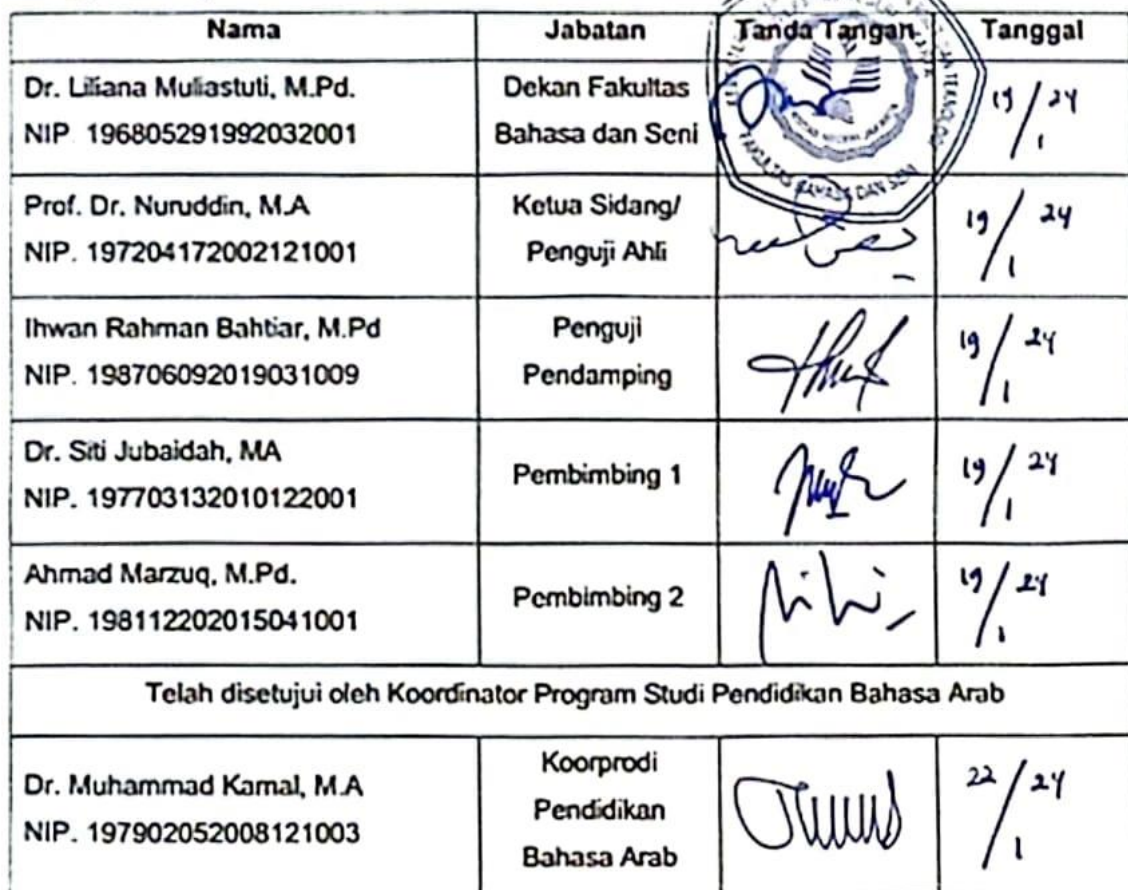 Nama Jabatan Tanda Tangan Tanggal
Dr. Liliana Muliastuti, M.Pd.
NIP 196805291992032001
Dekan Fakultas
Bahasa dan Seni
FAKULTAS BAHASA DAN SENI
19/1 24
Prof. Dr. Nuruddin, M.A
NIP. 197204172002121001
Ketua Sidang/
Penguji Ahli
19/1 24
Ihwan Rahman Bahtiar, M.Pd
NIP. 198706092019031009
Penguji
Pendamping
19/1 24
Dr. Siti Jubaidah, MA
NIP. 197703132010122001
Pembimbing 1
19/1 24
Ahmad Marzuq, M.Pd.
NIP. 198112202015041001
Pembimbing 2
19/1 24
Telah disetujui oleh Koordinator Program Studi Pendidikan Bahasa Arab
Dr. Muhammad Kamal, M.A
NIP. 197902052008121003
Koorprodi
Pendidikan
Bahasa Arab
22/1 24